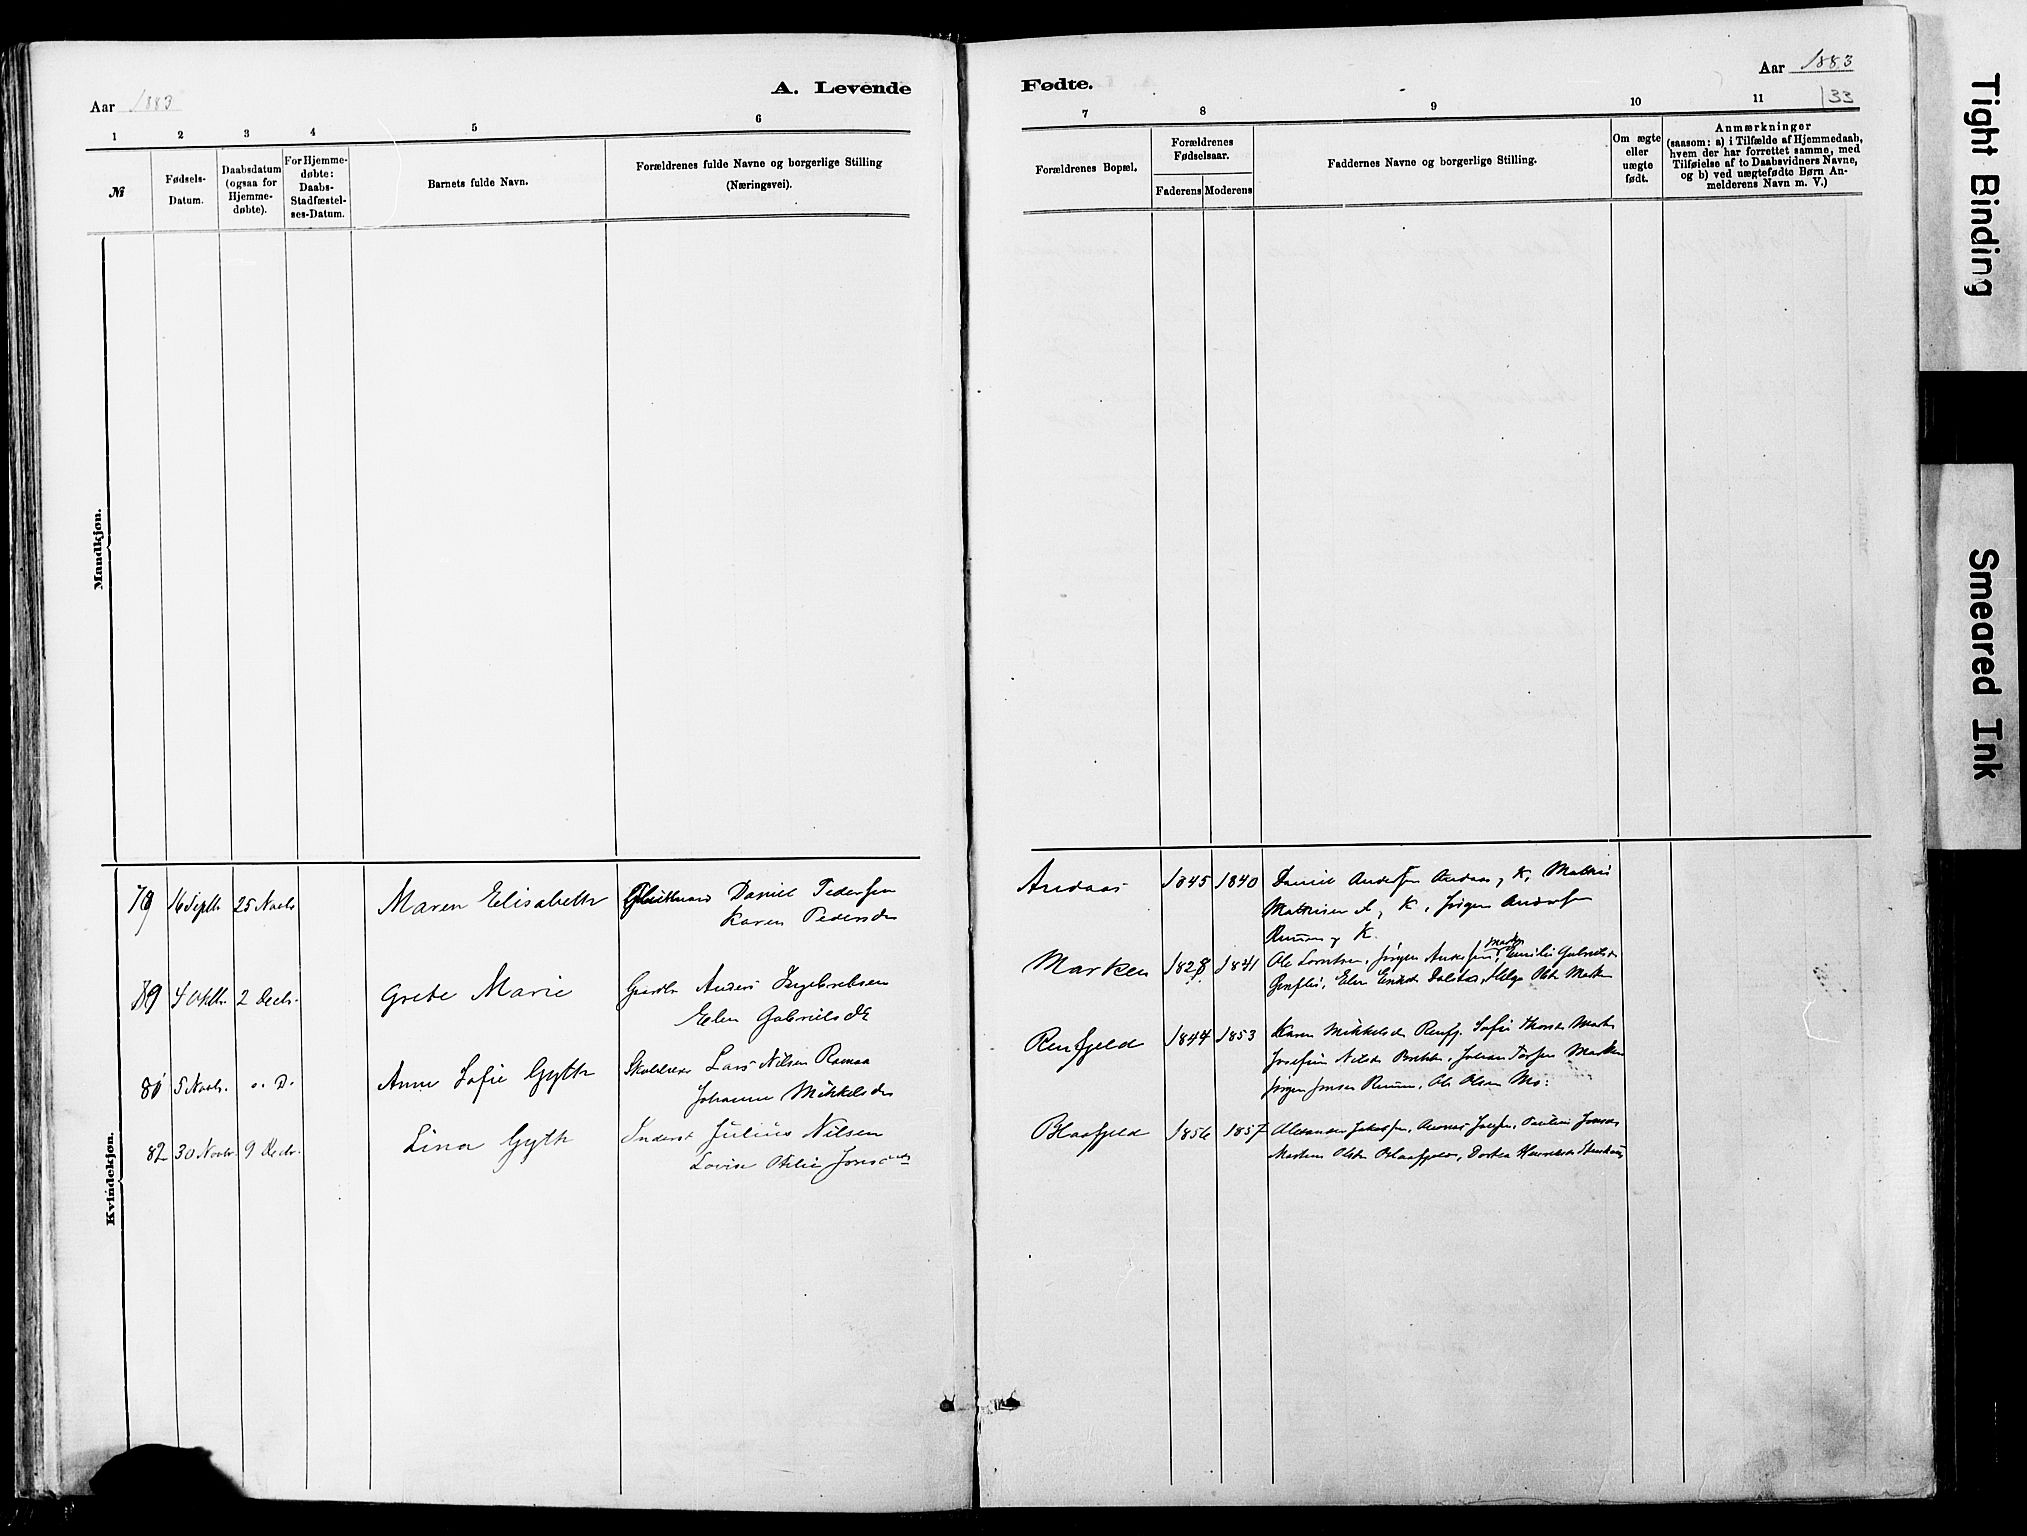 Aar 1883
A. Levende
1 2 3 4 5 6
№
Fødsels-
Datum.
Daabsdatum
(ogsaa for
Hjemme-
døbte).
For Hjemme-
døbte:
Daabs-
Stadfæstel-
ses-Datum.
Barnets fulde Navn.
Forældrenes fulde Navne og borgerlige Stilling
(Næringsvei).
Mandkjøn.
79 16 Septbr 25 Novbr Maren Elisabeth Daniel Pedersen
Karen Pedersdr
4 Oktbr 2 Decbr. Grete Marie Gaardbr Anders Ingebretsen
Elen Gabrielsdtr
81 5 Novbr. s. D. Anne Sofie Gyth Skolelærer Lars Nilsen
Johanna Mikkelsdr
82 30 Novbr. 9 Decbr. Lina Gyth Inderst Julius Nilsen
Lovise Otelie
Kvindekjøn.
Fødte.
Aar 1883
133
7 8 9 10 11
Forældrenes Bopæl.
Forældrenes
Fødselsaar.
Faderens Moderens
Faddernes Navne og borgerlige Stilling.
Om ægte
eller
uægte
født.
Anmærkninger
(saasom: a) i Tilfælde af Hjemmedaab,
hvem der har forrettet samme, med
Tilføielse af to Daabsvidners Navne,
og b) ved uægtefødte Børn An-
melderens Navn m. V.)
Andaas 1845 1840 Daniel Andersen Andaas, K, Mathis
Mathisen A, K, Jørgen Andersen
K.
Marken
Marken 1828 1841 Ole Jørgen Andersen, Gabrielsdr
Elen Helge Marken
Renfjeld 1844 1853 Karen Mikkelsdr Renfj. Sofie
Josefine Nilsdr Johan Marken
Jørgen Jensen Ole Olsen Mo.
Blaafjeld 1856 1857 Jakobsen, Pauline
Olsdr Blaafjeld, Dortea
Tight Binding
Smeared Ink